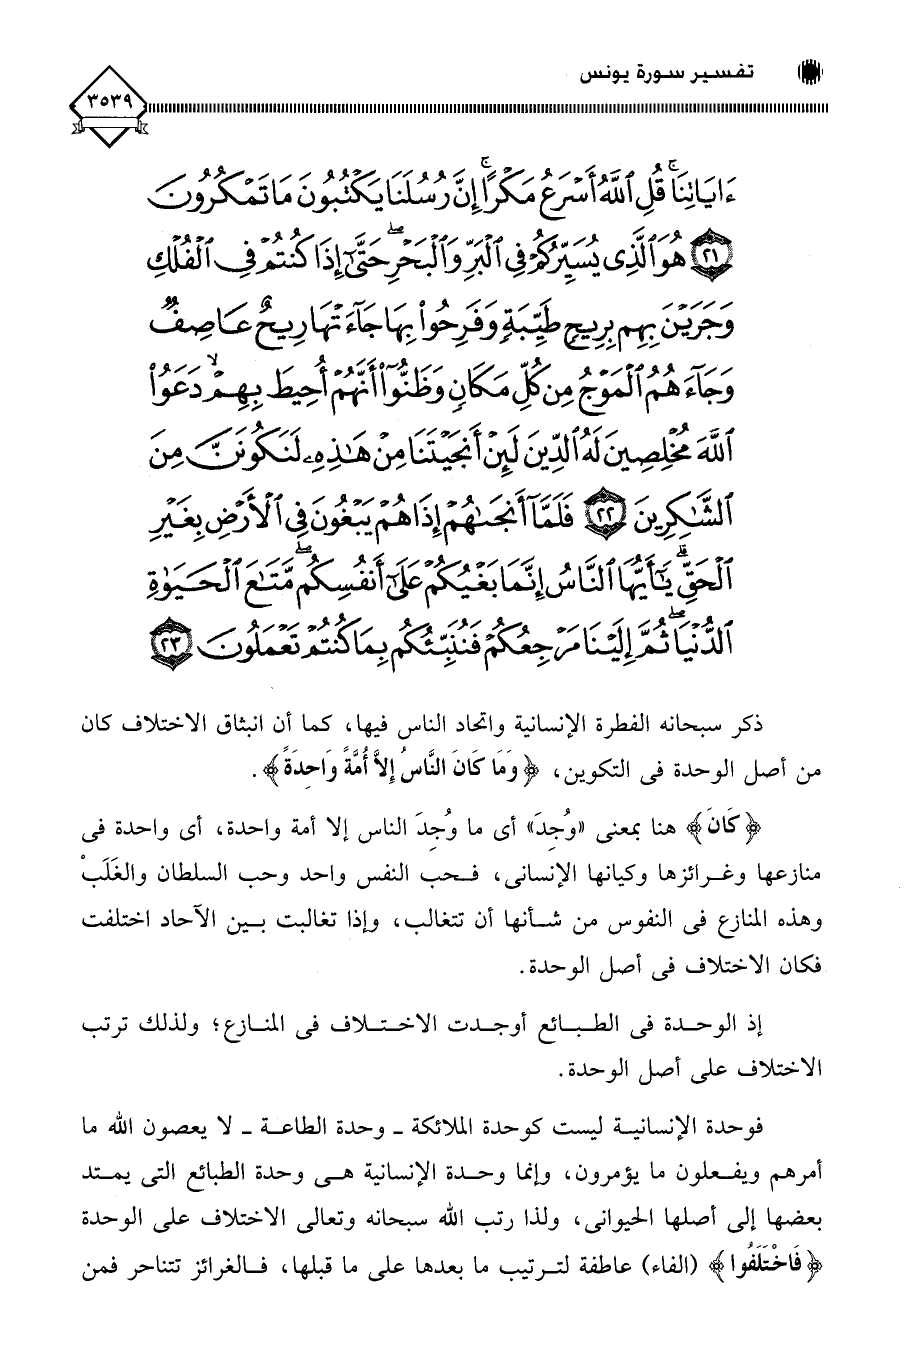 تفسير سورة يونس
٣٥٣٩
ءَايَاتِنَا قُلِ ٱللَّهُ أَسْرَعُ مَكْرًا إِنَّ رُسُلَنَا يَكْتُبُونَ مَا تَمْكُرُونَ
٢١ هُوَ ٱلَّذِى يُسَيِّرُكُمْ فِى ٱلْبَرِّ وَٱلْبَحْرِ حَتَّىٰٓ إِذَا كُنتُمْ فِى ٱلْفُلْكِ
وَجَرَيْنَ بِهِم بِرِيحٍ طَيِّبَةٍ وَفَرِحُوا۟ بِهَا جَآءَتْهَا رِيحٌ عَاصِفٌ
وَجَآءَهُمُ ٱلْمَوْجُ مِن كُلِّ مَكَانٍ وَظَنُّوٓا۟ أَنَّهُمْ أُحِيطَ بِهِمْ دَعَوُا۟
ٱللَّهَ مُخْلِصِينَ لَهُ ٱلدِّينَ لَئِنْ أَنجَيْتَنَا مِنْ هَٰذِهِۦ لَنَكُونَنَّ مِنَ
ٱلشَّٰكِرِينَ ٢٢ فَلَمَّآ أَنجَىٰهُمْ إِذَا هُمْ يَبْغُونَ فِى ٱلْأَرْضِ بِغَيْرِ
ٱلْحَقِّ يَٰٓأَيُّهَا ٱلنَّاسُ إِنَّمَا بَغْيُكُمْ عَلَىٰٓ أَنفُسِكُم مَّتَٰعَ ٱلْحَيَوٰةِ
ٱلدُّنْيَا ثُمَّ إِلَيْنَا مَرْجِعُكُمْ فَنُنَبِّئُكُم بِمَا كُنتُمْ تَعْمَلُونَ ٢٣
ذكر سبحانه الفطرة الإنسانية واتحاد الناس فيها، كما أن انبثاق الاختلاف كان
من أصل الوحدة فى التكوين، ﴿وَمَا كَانَ النَّاسُ إِلاَّ أُمَّةً وَاحِدَةً﴾.
﴿كَانَ﴾ هنا بمعنى «وُجِدَ» أى ما وُجِدَ الناس إلا أمة واحدة، أى واحدة فى
منازعها وغرائزها وكيانها الإنسانى، فحب النفس واحد وحب السلطان والغَلَبْ
وهذه المنازع فى النفوس من شأنها أن تتغالب، وإذا تغالبت بين الآحاد اختلفت
فكان الاختلاف فى أصل الوحدة.
إذ الوحدة فى الطبائع أوجدت الاختلاف فى المنازع؛ ولذلك ترتب
الاختلاف على أصل الوحدة.
فوحدة الإنسانية ليست كوحدة الملائكة ـ وحدة الطاعة ـ لا يعصون الله ما
أمرهم ويفعلون ما يؤمرون، وإنما وحدة الإنسانية هى وحدة الطبائع التى يمتد
بعضها إلى أصلها الحيوانى، ولذا رتب الله سبحانه وتعالى الاختلاف على الوحدة
﴿فَاخْتَلَفُوا﴾ (الفاء) عاطفة لترتيب ما بعدها على ما قبلها، فالغرائز تتناحر فمن